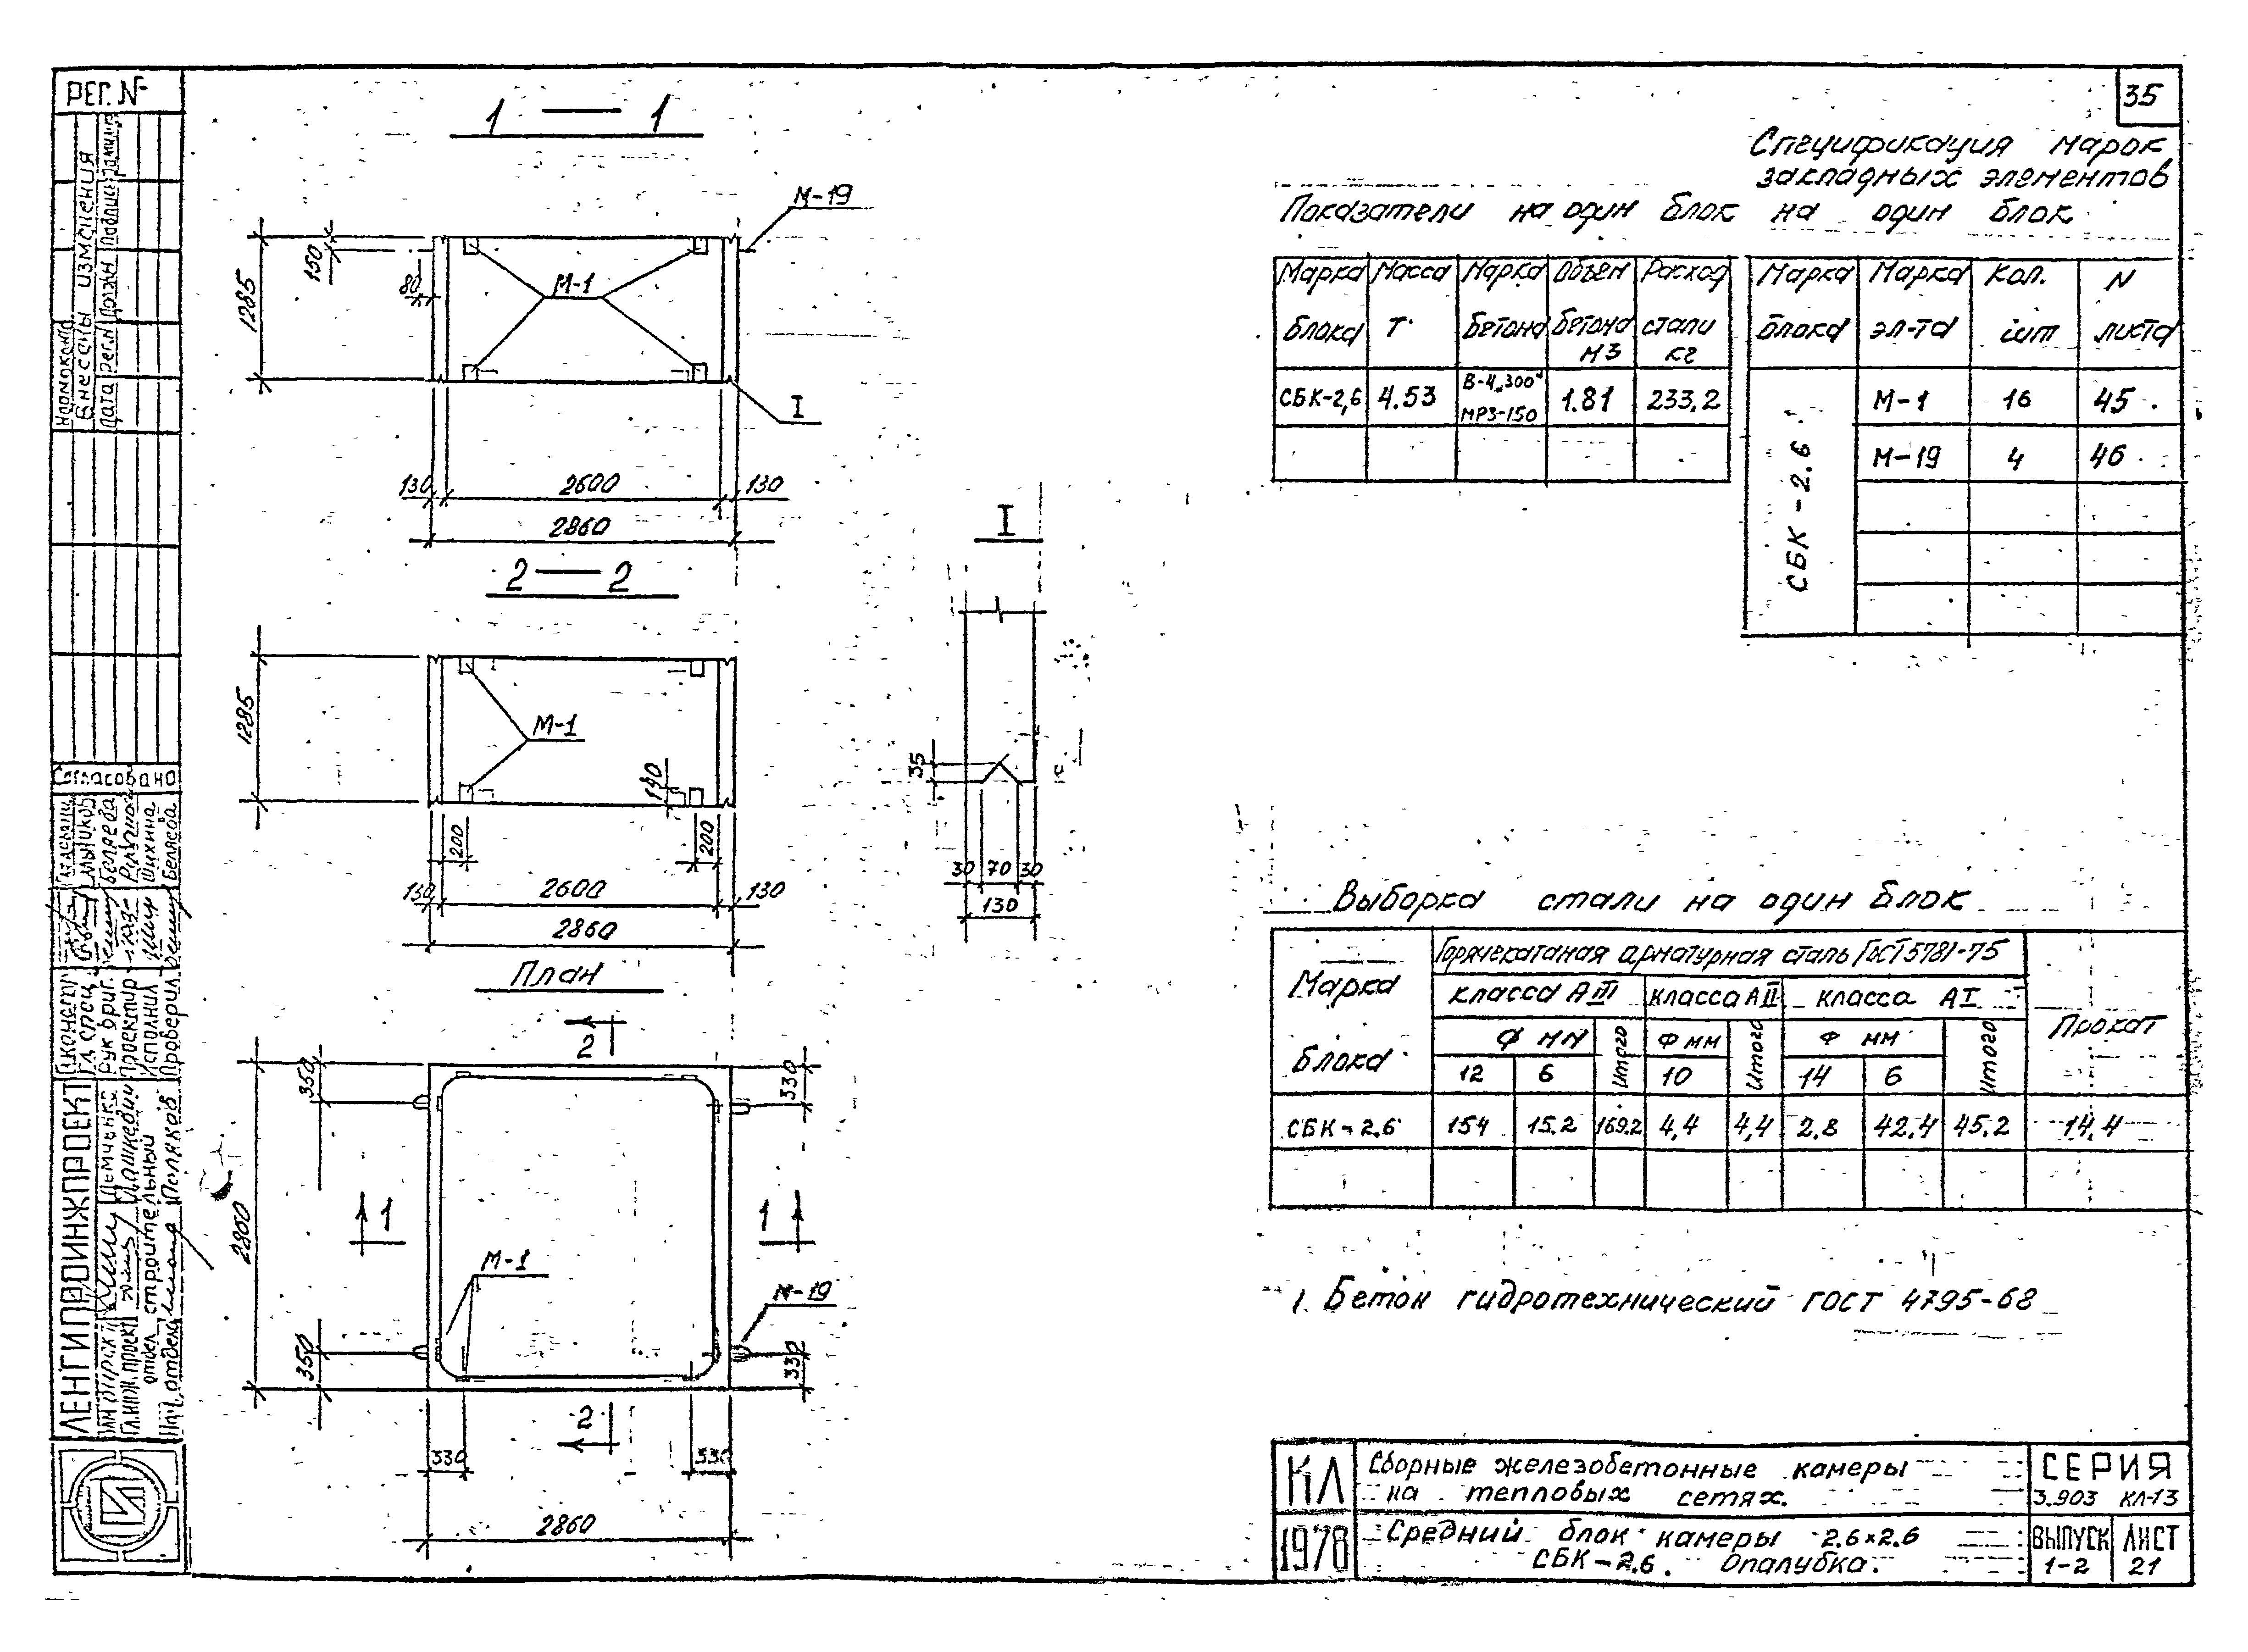 РЕГ. №
35
1 — 1
М-19
1285
150
80
М-1
I
130 2600 130
2860
2 — 2
1285
М-1
140
200 200
130 2600 130
2860
I
35
30 70 30
130
План
2
350 330
2860
1 1
М-1
М-19
350 330
2
330 330
2860
Показатели на один блок
Марка блока
Масса т
Марка бетона
Объем бетона м3
Расход стали кг
СБК-2,6 4.53 В-4 „300" МРЗ-150 1.81 233,2
Спецификация марок
закладных элементов
на один блок
Марка блока
Марка эл-та
Кол. шт
N листа
СБК-2.6
М-1 16 45
М-19 4 46
Выборка стали на один блок
Марка блока
Горячекатаная арматурная сталь ГОСТ 5781-75
класса АIII класса АII класса АI
Прокат
Ф мм Итого Ф мм Итого Ф мм Итого
12 6 10 14 6
СБК-2.6 154 15.2 169.2 4,4 4,4 2.8 42.4 45.2 14.4
1. Бетон гидротехнический ГОСТ 4795-68
КЛ
1978
Сборные железобетонные камеры
на тепловых сетях.
Средний блок камеры 2.6×2.6
СБК-2.6. Опалубка.
СЕРИЯ
3.903 КЛ-13
ВЫПУСК
1-2
ЛИСТ
21
Внесены изменения
Дата Рег.N Должн
Согласовано
Беляева
Щукина
Беляева
Гл. спец.
Рук. бриг.
Проектир.
Исполнил
Проверил
ЛЕНГИПРОИНЖПРОЕКТ
отдел строительный
Нач. отдела
Поляков